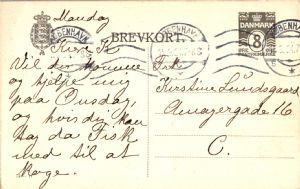 Mandag
KØBENHAVN
BREVKORT.
DANMARK
8
Kære
Vil du komme
og hjælpe mig
paa Onsdag,
og hvis du kan
tag da Fisk
med til at
koge.
Frk.
Kirstine Lundsgaard
Amagergade 16
C.